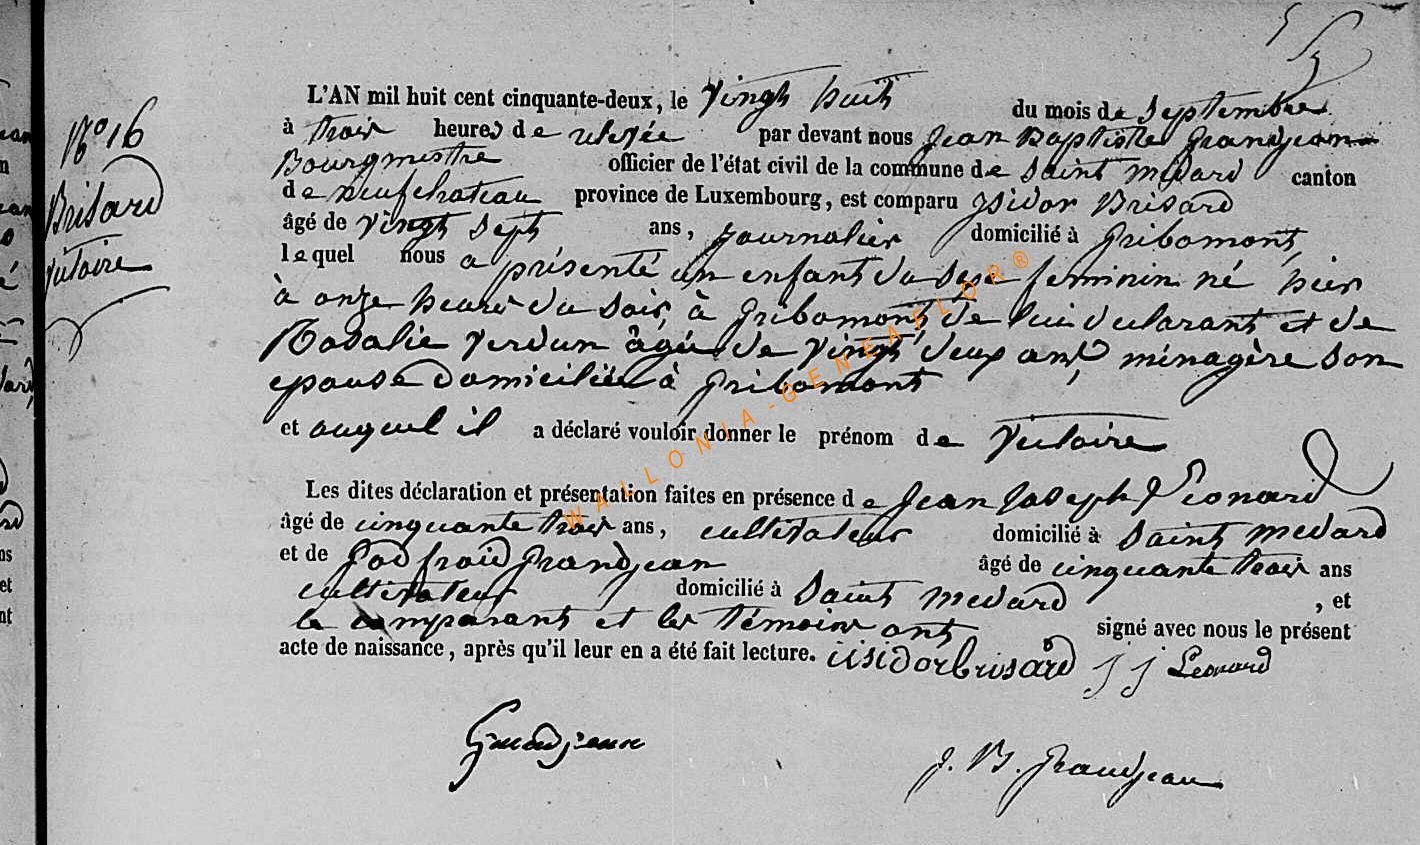 N° 16
Brisard
Victoire
L'AN mil huit cent cinquante-deux, le vingt huit du mois de Septembre
à trois heures de relevée par devant nous Jean Baptiste Grandjean
Bourgmestre officier de l'état civil de la commune de Saint Medard canton
de Neufchateau province de Luxembourg, est comparu Isidor Brisard
âgé de vingt sept ans, journalier domicilié à Gribomont,
lequel nous a présenté un enfant du sexe feminin né hier
à onze heures du soir, à Gribomont, de lui déclarant et de
Rosalie Verdun âgée de vingt deux ans, ménagère son
epouse domiciliée à Gribomont
et auquel il a déclaré vouloir donner le prénom de Victoire
Les dites déclaration et présentation faites en présence de Jean Joseph Léonard
âgé de cinquante trois ans, cultivateur domicilié à Saint Medard
et de Godfroid Grandjean âgé de cinquante trois ans
cultivateur domicilié à Saint Medard , et
le comparant et les témoins ont signé avec nous le présent
acte de naissance, après qu'il leur en a été fait lecture. isidor brisard j j Leonard
Grandjean J. B. Grandjean
WALLONIA-GENEAFLOR®